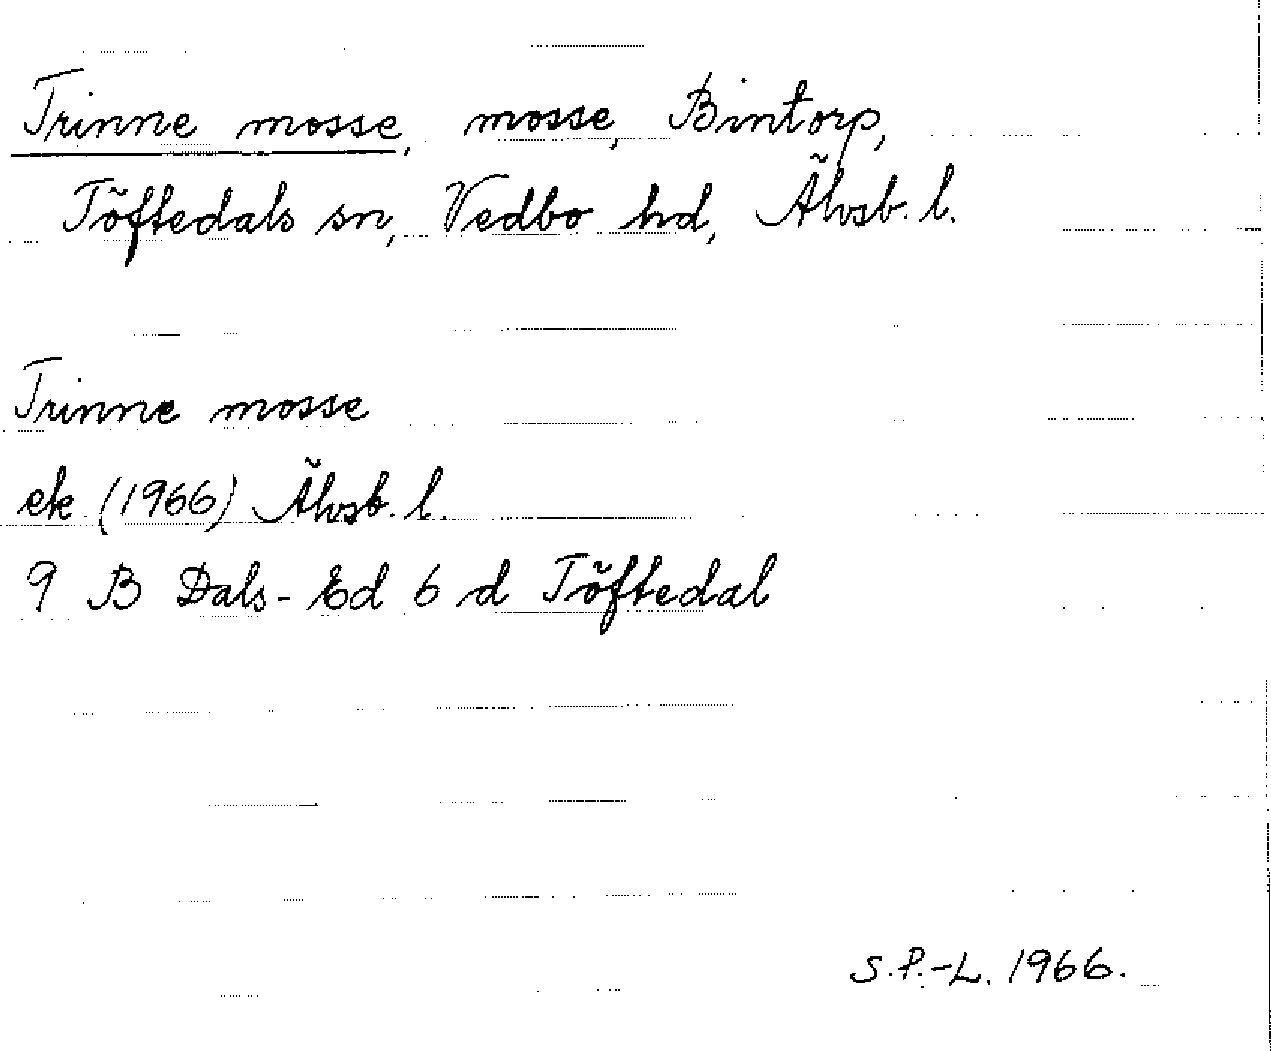 Trinne mosse, mosse, Bintorp,
Töftedals sn, Vedbo hd, Älvsb. l.
Trinne mosse
ek (1966) Älvsb. l.
9 B Dals-Ed 6 d Töftedal
S.P.-L. 1966.